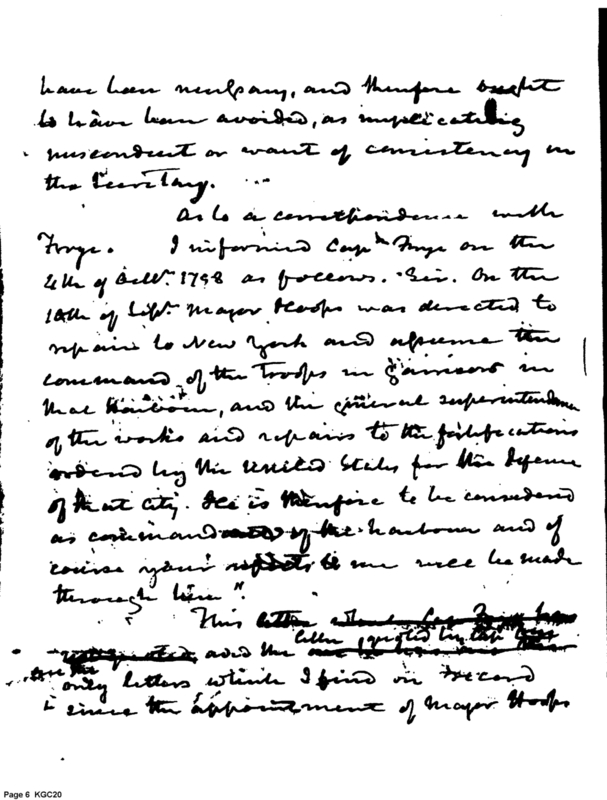 have been necessary, and therefore ought
to have been avoided, as implicating
misconduct or want of consistency in
the Secretary.
As to a correspondence with
Frye. I informed Capn Frye on the
4th of Octr. 1798 as follows. "Sir. On the
10th of Sepr. Major Hoops was directed to
repair to New York and assume the
command of the Troops in Garrison in
that Harbour, and the general superintendence
of the works and repairs to the fortifications
ordered by the United States for the defense
of that City. He is therefore to be considered
as commandant of the harbour and of
course your reports to me will be made
through him".
This letter
letter, quoted by Cap
and the
are the
only letters which I find on record
since the appointment of Major Hoops
Page 6 KGC20